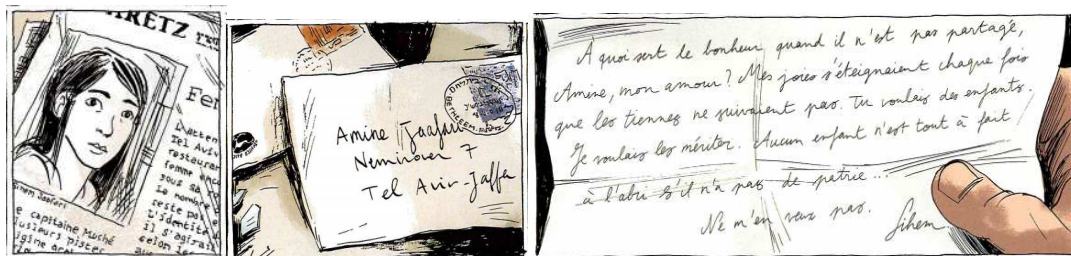 RETZ
Fe
L'atten
Tel Aviv
restauran
femme enc
sous sa
le nombre
reste pa
L'identité
il s'agirai
selon les
Sihem Jaafari
e capitaine Moshé
lusieurs pistes
igine
BETHLEEM
Amine Jaafari
Tel Aviv-Jaffa
À quoi sert le bonheur quand il n'est pas partagé,
Amine, mon amour? Mes joies s'éteignaient chaque fois
que les tiennes ne suivaient pas. Tu voulais des enfants.
Je voulais les mériter. Aucun enfant n'est tout à fait
à l'abri s'il n'a pas de patrie...
Ne m'en veux pas.
Sihem